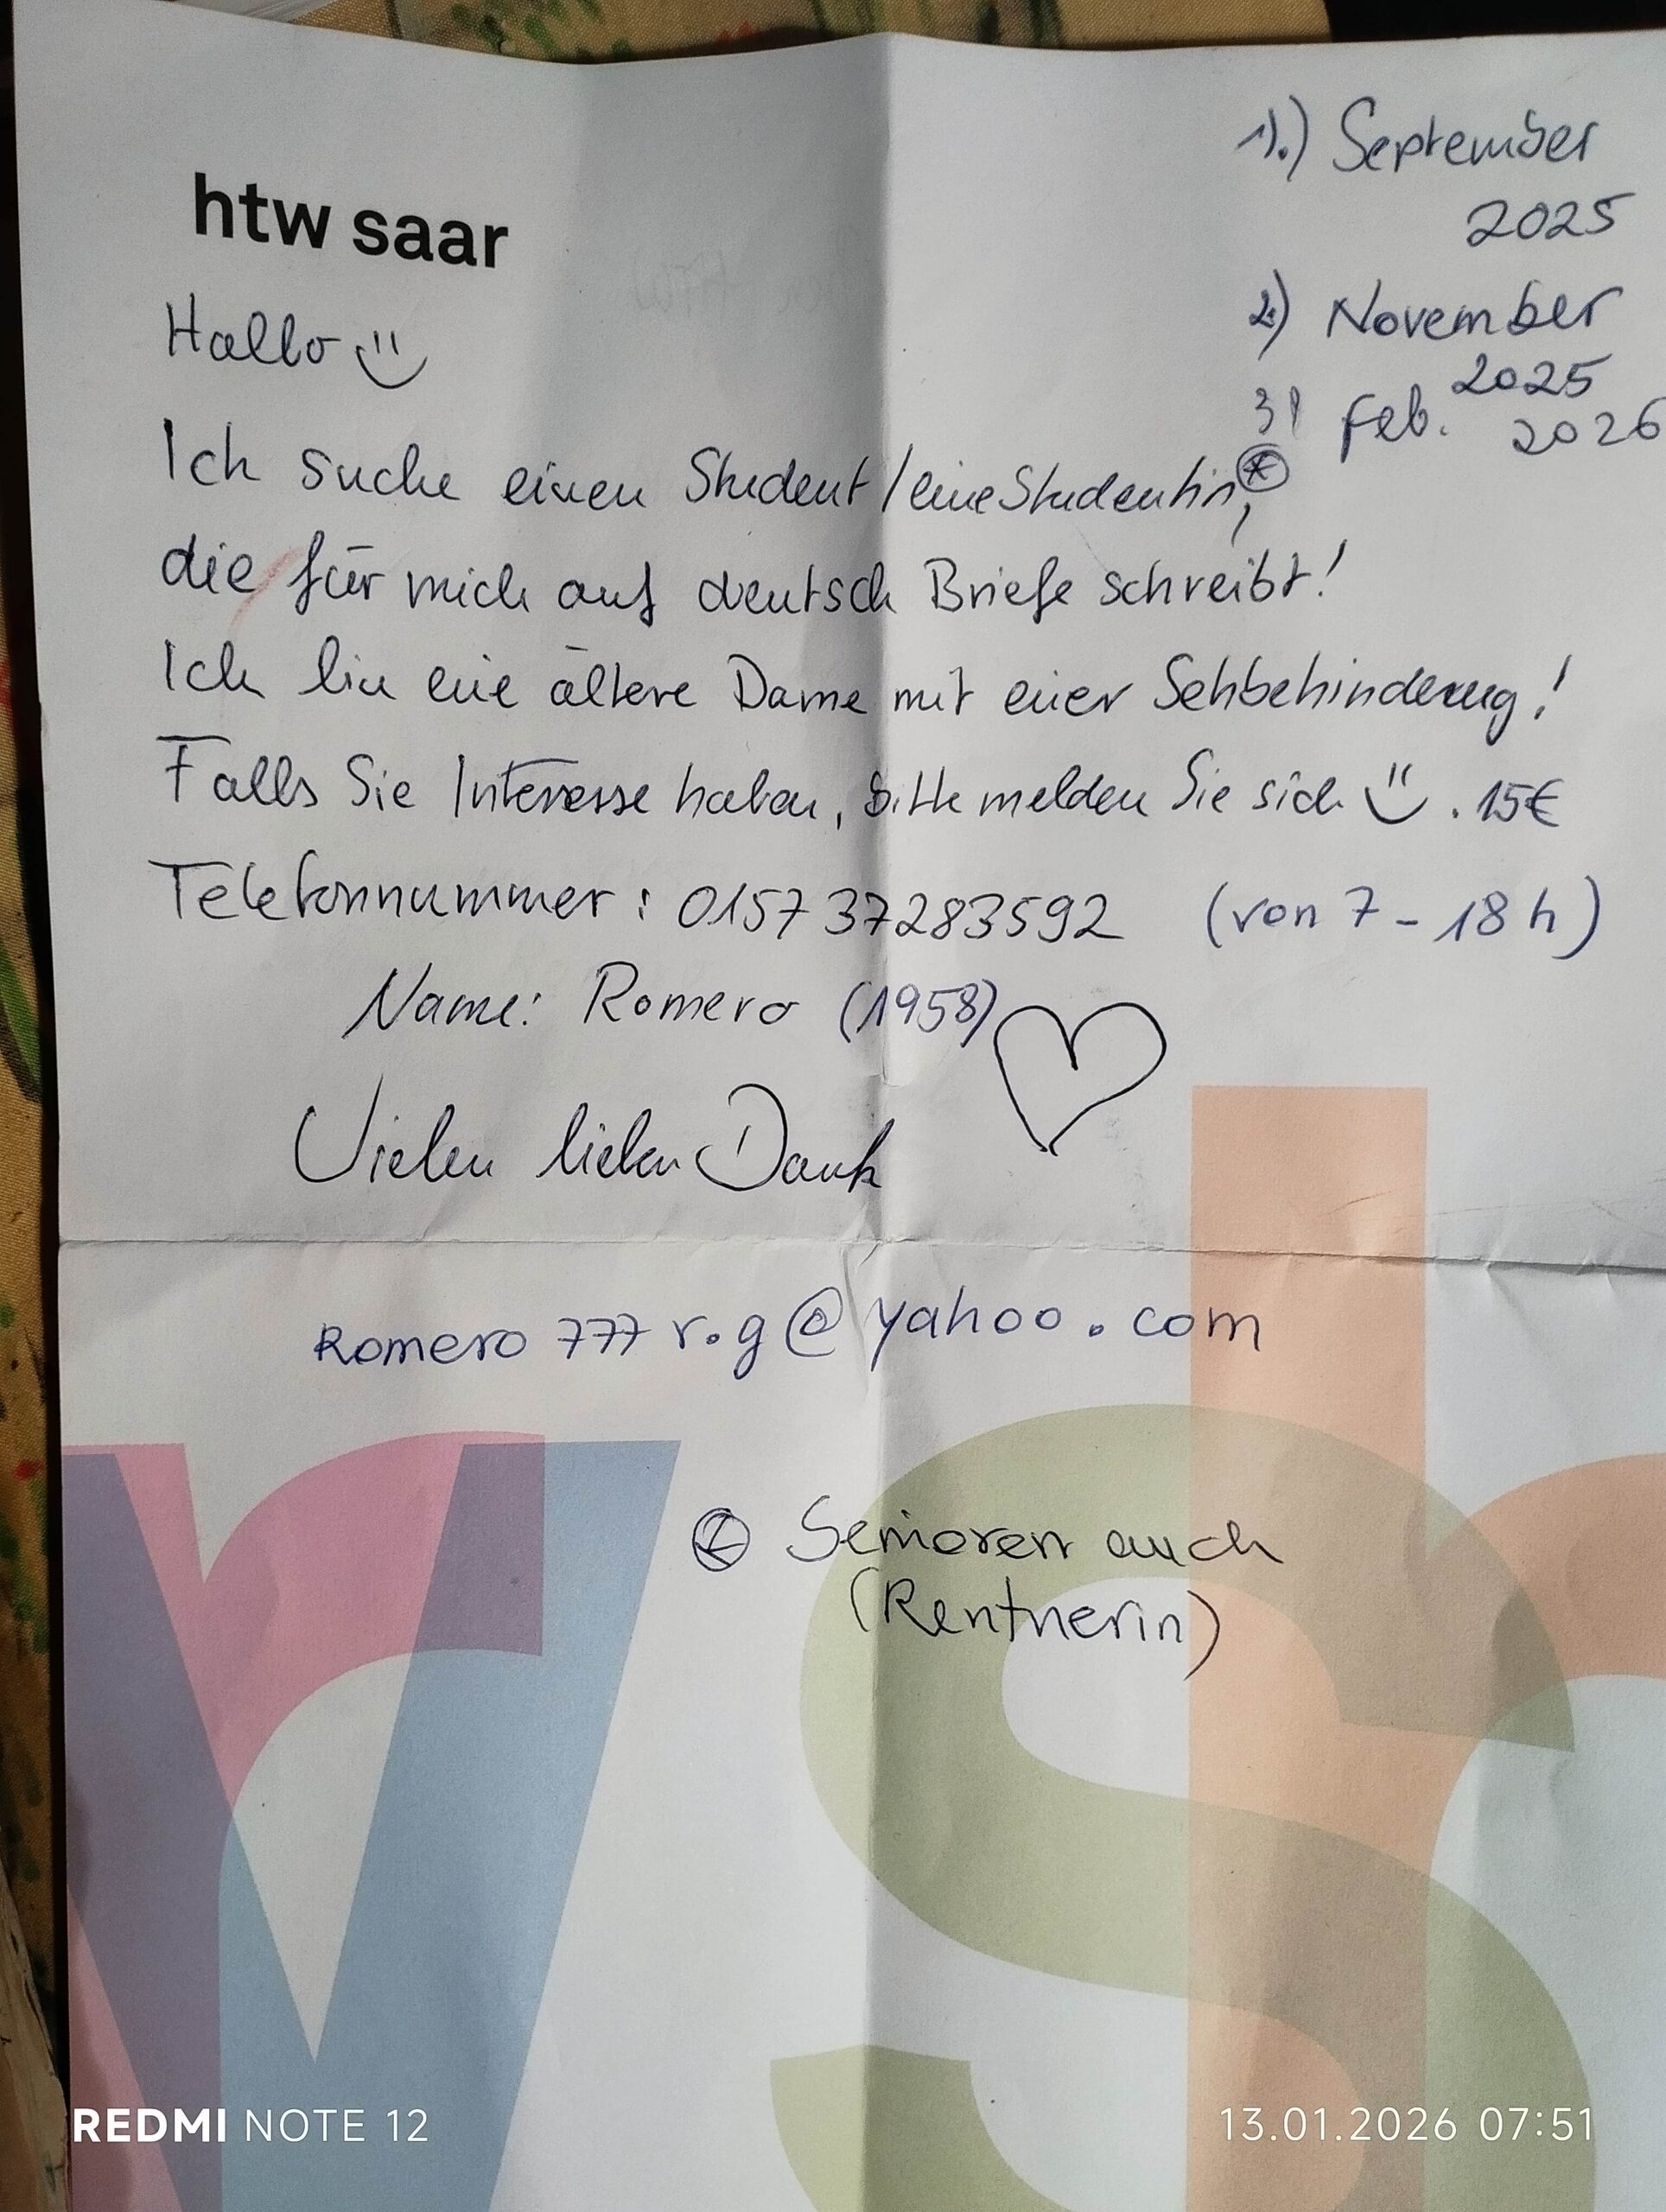 1.) September
2025
2) November
2025
3) Feb. 2026
htw saar
Hallo
Ich suche einen Student / eine Studentin,
die für mich auf deutsch Briefe schreibt!
Ich bin eine ältere Dame mit einer Sehbehinderung!
Falls Sie Interesse haben, bitte melden Sie sich . 15€
Telefonnummer : 0157 37283592 (von 7 - 18 h)
Name: Romero (1958)
Vielen lieben Dank
Romero 777 r.g@yahoo.com
Senioren auch
(Rentnerin)
REDMI NOTE 12
13.01.2026 07:51